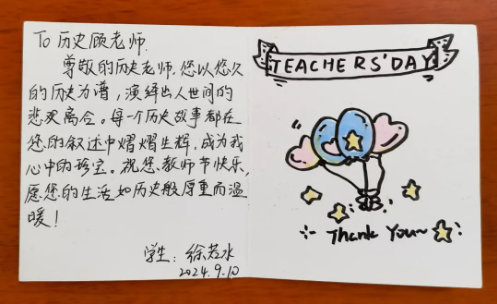 To 历史顾老师.
尊敬的历史老师,您以悠久
的历史为谱,演绎出人世间的
悲欢离合。每一个历史故事都在
您的叙述中熠熠生辉,成为我
心中的珍宝。祝您教师节快乐,
愿您的生活如历史般厚重而温
暖!
学生:徐若水
2024.9.10
TEACHERS'DAY
Thank You~